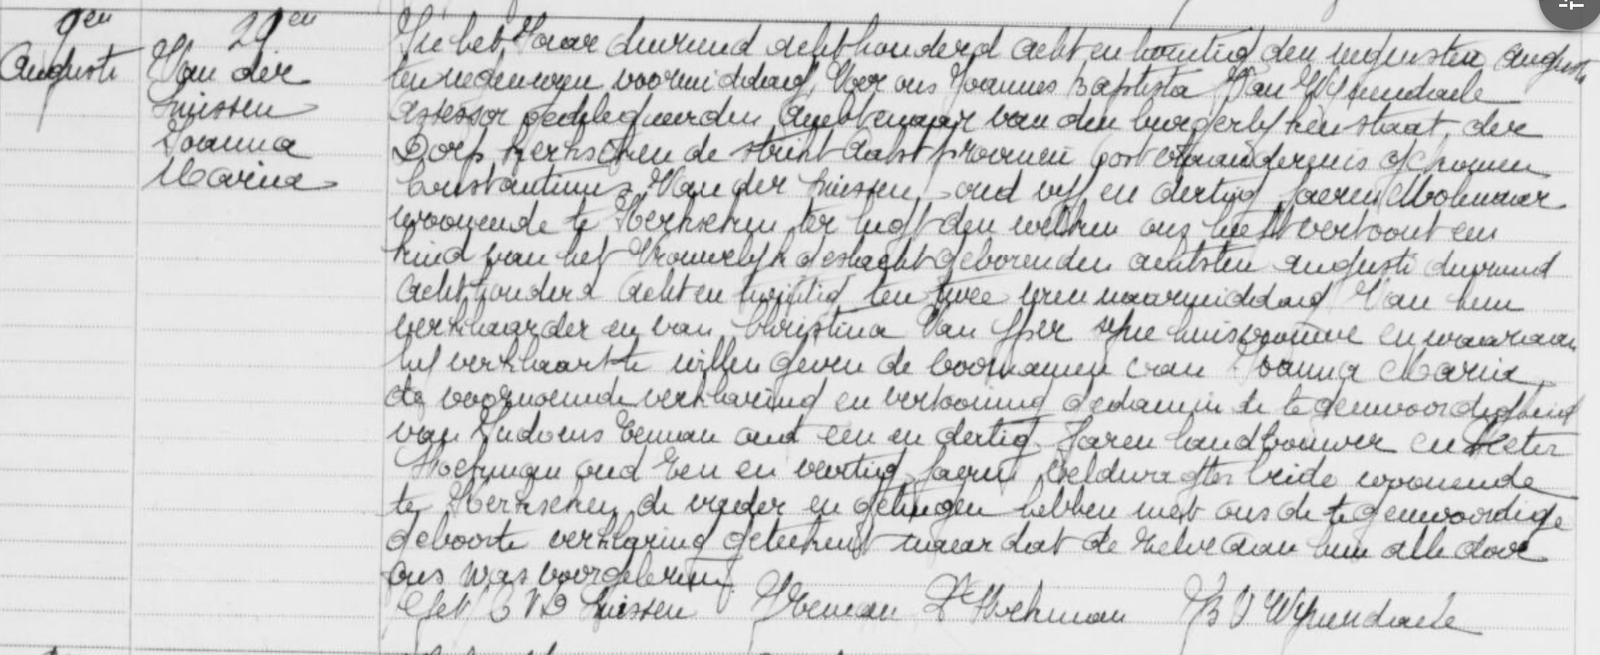 9en
Augusti
29en
Van der
Linssen
Joanna
Maria
In het Jaar duizend achthonderd acht en twintig den negensten augusti
ten negen uren voormiddag, Voor ons Joannes Baptista Van Wijnendaele
assessor gedelegueerden Ambtenaar van den burgerlyken staat der
Dorp Kerkschen de strikt aalst provincie oost vlaanderen is gekomen
Constantinus Van der Linssen oud vyf en dertig jaeren Molenaar
woonende te Kerkschen ter welken ons heeft vertoont een
kind van het Vrouwelyk geslacht geboren den achtsten augusti duizend
acht honderd acht en twintig ten twee uren naarmiddag Van hem
verklaarder en van Christina Van syne huisvrouwe en waaraan
hy verklaart te willen geven de voornamen van Joanna Maria
de voornoemde verklaring en vertooning gedaan in de tegenwoordigheid
van Ludovus Eeman oud een en dertig Jaren landbouwer en Peter
Hoekman oud een en veertig jaeren Veldwagter beide woonende
te Kerkschen de vader en getuigen hebben met ons de tegenwoordige
geboorte verklaring getekent naar dat de zelve aan hun alle door
ons was voorgelezen
Get C VD Linssen Eeman P Hoekman JB V Wijnendaele